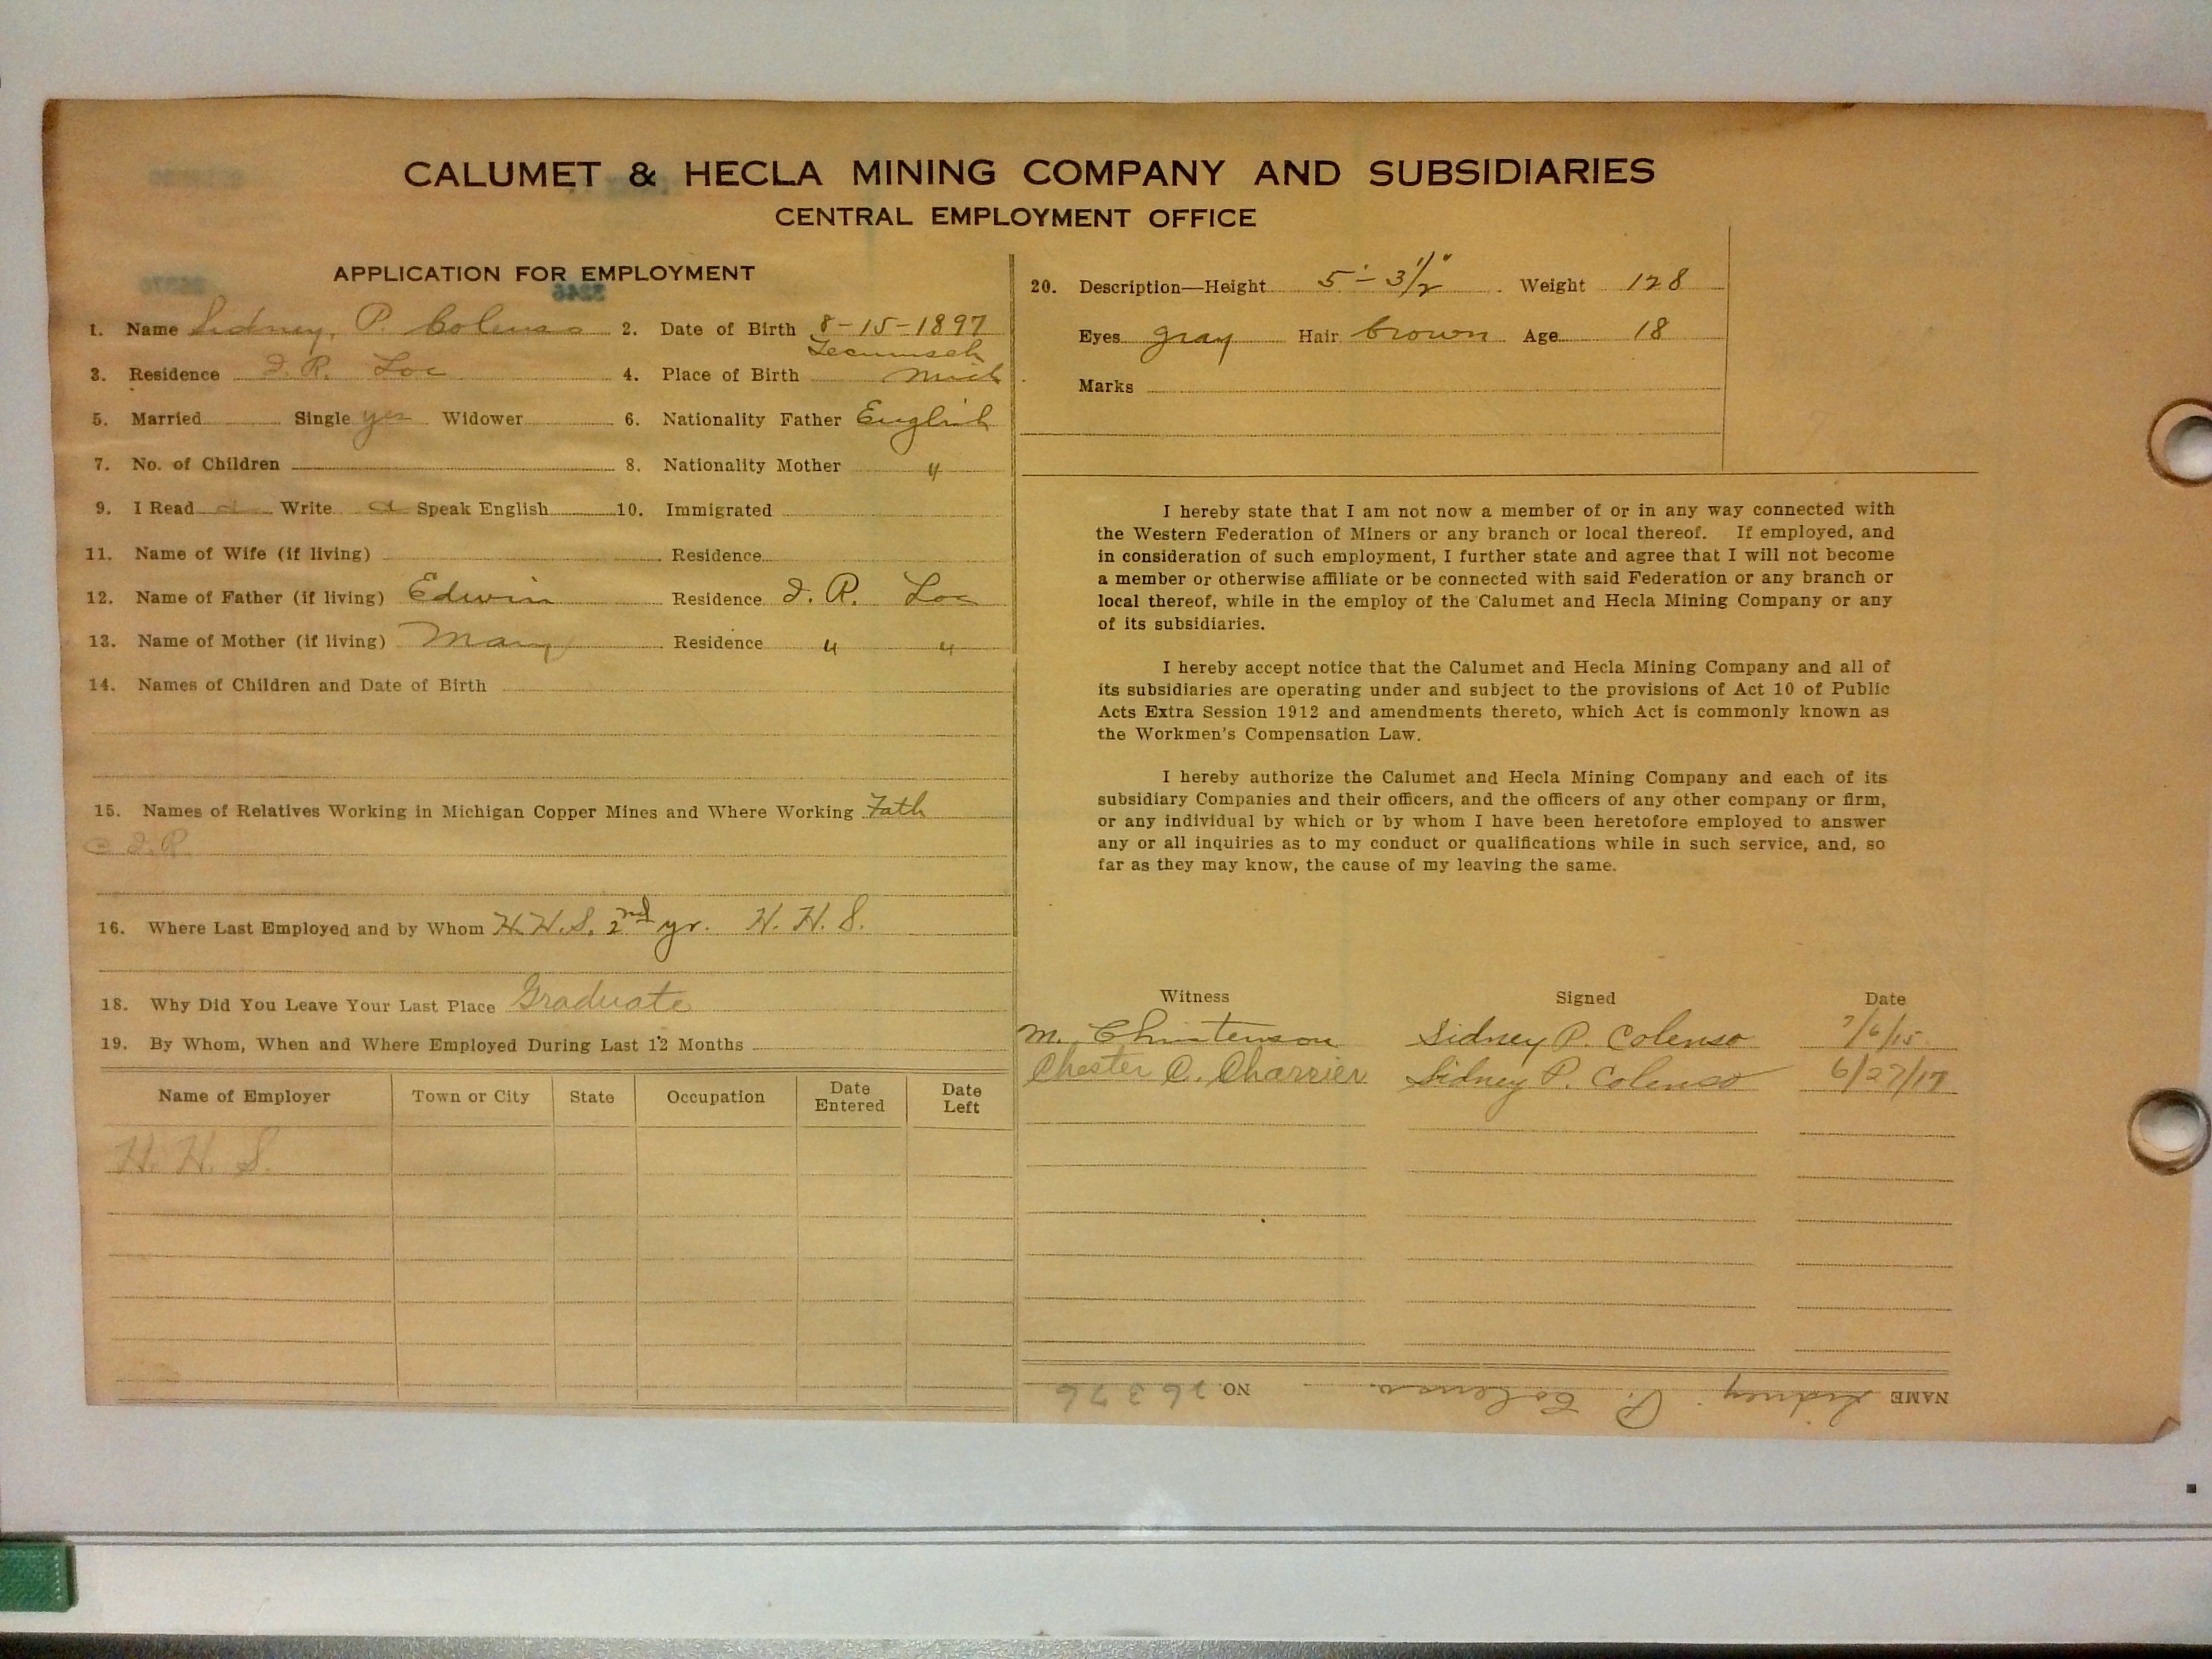 CALUMET & HECLA MINING COMPANY AND SUBSIDIARIES
CENTRAL EMPLOYMENT OFFICE
APPLICATION FOR EMPLOYMENT
1. Name Sidney, P. Colenso 2. Date of Birth 8-15-1897
3. Residence I. R. Loc 4. Place of Birth Tecumseh Mich
5. Married Single yes Widower 6. Nationality Father English
7. No. of Children 8. Nationality Mother "
9. I Read Write Speak English 10. Immigrated
11. Name of Wife (if living) Residence
12. Name of Father (if living) Edwin Residence I. R. Loc
13. Name of Mother (if living) Mary Residence " "
14. Names of Children and Date of Birth
15. Names of Relatives Working in Michigan Copper Mines and Where Working Fath
I.R.
16. Where Last Employed and by Whom H.H.S. 2nd yr. H. H. S.
18. Why Did You Leave Your Last Place Graduate
19. By Whom, When and Where Employed During Last 12 Months
Name of Employer Town or City State Occupation Date Entered Date Left
H. H. S.
20. Description—Height 5'-3½" Weight 128
Eyes gray Hair brown Age 18
Marks
I hereby state that I am not now a member of or in any way connected with
the Western Federation of Miners or any branch or local thereof. If employed, and
in consideration of such employment, I further state and agree that I will not become
a member or otherwise affiliate or be connected with said Federation or any branch or
local thereof, while in the employ of the Calumet and Hecla Mining Company or any
of its subsidiaries.
I hereby accept notice that the Calumet and Hecla Mining Company and all of
its subsidiaries are operating under and subject to the provisions of Act 10 of Public
Acts Extra Session 1912 and amendments thereto, which Act is commonly known as
the Workmen's Compensation Law.
I hereby authorize the Calumet and Hecla Mining Company and each of its
subsidiary Companies and their officers, and the officers of any other company or firm,
or any individual by which or by whom I have been heretofore employed to answer
any or all inquiries as to my conduct or qualifications while in such service, and, so
far as they may know, the cause of my leaving the same.
Witness Signed Date
M. Christenson Sidney P. Colenso 7/6/15
Chester C. Charrier Sidney P. Colenso 6/27/17
NAME Sidney P. Colenso. NO. 26376